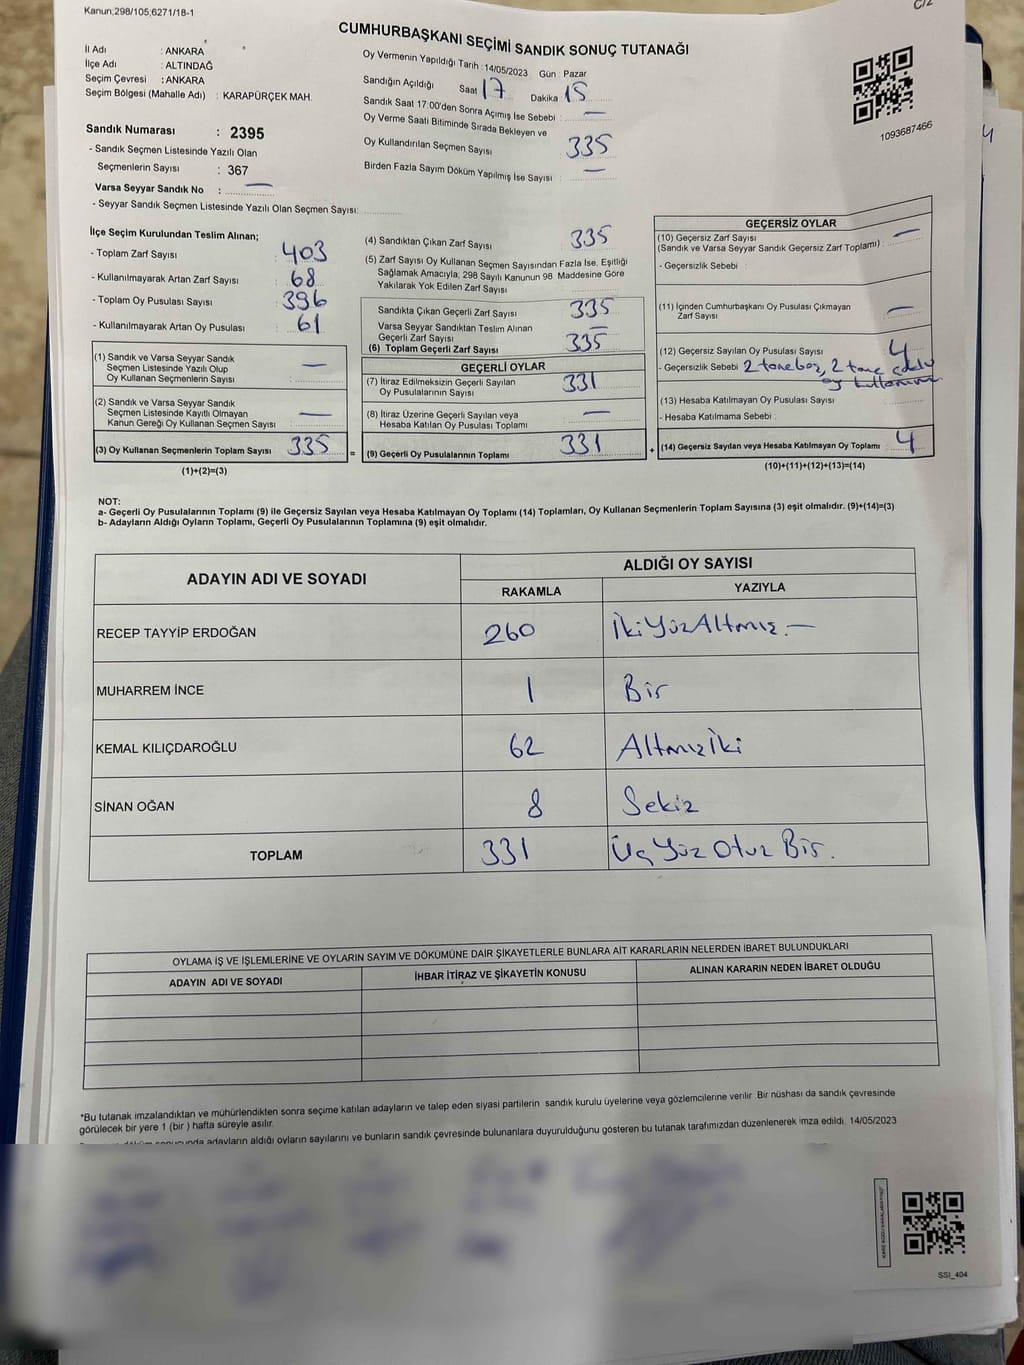 Kanun;298/105,6271/18-1
C/2
CUMHURBAŞKANI SEÇİMİ SANDIK SONUÇ TUTANAĞI
İl Adı : ANKARA
İlçe Adı : ALTINDAĞ
Seçim Çevresi : ANKARA
Seçim Bölgesi (Mahalle Adı) : KARAPÜRÇEK MAH.
Oy Vermenin Yapıldığı Tarih : 14/05/2023 Gün : Pazar
Sandığın Açıldığı Saat 17 Dakika 15
Sandık Saat 17:00'den Sonra Açımış İse Sebebi : —
Oy Verme Saati Bitiminde Sırada Bekleyen ve
Oy Kullandırılan Seçmen Sayısı 335
Birden Fazla Sayım Döküm Yapılmış İse Sayısı : —
1093687466
4
Sandık Numarası : 2395
- Sandık Seçmen Listesinde Yazılı Olan
Seçmenlerin Sayısı : 367
Varsa Seyyar Sandık No : —
- Seyyar Sandık Seçmen Listesinde Yazılı Olan Seçmen Sayısı:
İlçe Seçim Kurulundan Teslim Alınan;
- Toplam Zarf Sayısı : 403
- Kullanılmayarak Artan Zarf Sayısı : 68
- Toplam Oy Pusulası Sayısı : 396
- Kullanılmayarak Artan Oy Pusulası : 61
(1) Sandık ve Varsa Seyyar Sandık
Seçmen Listesinde Yazılı Olup
Oy Kullanan Seçmenlerin Sayısı : —
(2) Sandık ve Varsa Seyyar Sandık
Seçmen Listesinde Kayıtlı Olmayan
Kanun Gereği Oy Kullanan Seçmen Sayısı : —
(3) Oy Kullanan Seçmenlerin Toplam Sayısı : 335 =
(1)+(2)=(3)
(4) Sandıktan Çıkan Zarf Sayısı 335
(5) Zarf Sayısı Oy Kullanan Seçmen Sayısından Fazla İse, Eşitliği
Sağlamak Amacıyla; 298 Sayılı Kanunun 98. Maddesine Göre
Yakılarak Yok Edilen Zarf Sayısı
Sandıkta Çıkan Geçerli Zarf Sayısı 335
Varsa Seyyar Sandıktan Teslim Alınan
Geçerli Zarf Sayısı —
(6) Toplam Geçerli Zarf Sayısı 335
GEÇERLİ OYLAR
(7) İtiraz Edilmeksizin Geçerli Sayılan
Oy Pusulalarının Sayısı : 331
(8) İtiraz Üzerine Geçerli Sayılan veya
Hesaba Katılan Oy Pusulası Toplamı —
(9) Geçerli Oy Pusulalarının Toplamı 331 +
GEÇERSİZ OYLAR
(10) Geçersiz Zarf Sayısı
(Sandık ve Varsa Seyyar Sandık Geçersiz Zarf Toplamı) : —
- Geçersizlik Sebebi :
(11) İçinden Cumhurbaşkanı Oy Pusulası Çıkmayan
Zarf Sayısı : —
(12) Geçersiz Sayılan Oy Pusulası Sayısı : 4
- Geçersizlik Sebebi 2 tane boş, 2 tane çoklu
oy kullanma
(13) Hesaba Katılmayan Oy Pusulası Sayısı :
- Hesaba Katılmama Sebebi :
(14) Geçersiz Sayılan veya Hesaba Katılmayan Oy Toplamı : 4
(10)+(11)+(12)+(13)=(14)
NOT:
a- Geçerli Oy Pusulalarının Toplamı (9) ile Geçersiz Sayılan veya Hesaba Katılmayan Oy Toplamı (14) Toplamları, Oy Kullanan Seçmenlerin Toplam Sayısına (3) eşit olmalıdır. (9)+(14)=(3)
b- Adayların Aldığı Oyların Toplamı, Geçerli Oy Pusulalarının Toplamına (9) eşit olmalıdır.
ADAYIN ADI VE SOYADI
ALDIĞI OY SAYISI
RAKAMLA YAZIYLA
RECEP TAYYİP ERDOĞAN 260 İkiYüzAltmış.—
MUHARREM İNCE 1 Bir
KEMAL KILIÇDAROĞLU 62 Altmışİki
SİNAN OĞAN 8 Sekiz
TOPLAM 331 Üç Yüz Otuz Bir.
OYLAMA İŞ VE İŞLEMLERİNE VE OYLARIN SAYIM VE DÖKÜMÜNE DAİR ŞİKAYETLERLE BUNLARA AİT KARARLARIN NELERDEN İBARET BULUNDUKLARI
ADAYIN ADI VE SOYADI İHBAR İTİRAZ VE ŞİKAYETİN KONUSU ALINAN KARARIN NEDEN İBARET OLDUĞU
*Bu tutanak imzalandıktan ve mühürlendikten sonra seçime katılan adayların ve talep eden siyasi partilerin sandık kurulu üyelerine veya gözlemcilerine verilir. Bir nüshası da sandık çevresinde
görülecek bir yere 1 (bir ) hafta süreyle asılır.
adayların aldığı oyların sayılarını ve bunların sandık çevresinde bulunanlara duyurulduğunu gösteren bu tutanak tarafımızdan düzenlenerek imza edildi. 14/05/2023
SSI_404